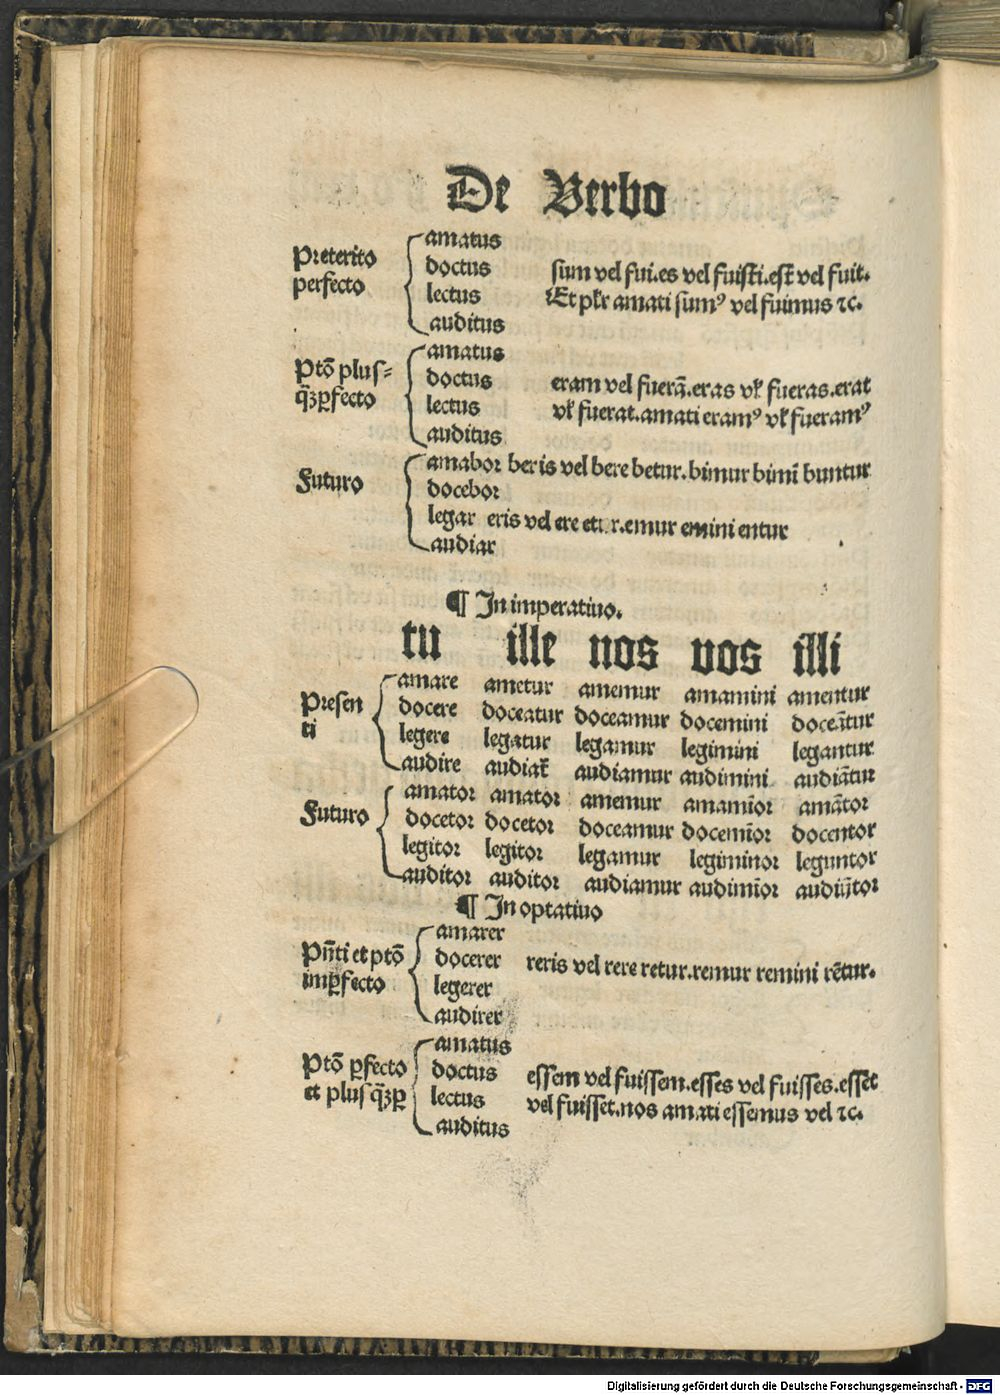 De Verbo
Preterito
perfecto
amatus
doctus
lectus
auditus
sum vel fui.es vel fuisti.est vel fuit.
Et pꝉr amati sumꝰ vel fuimus ⁊c.
Ptō plus⸗
q̄ꝫꝑfecto
amatus
doctus
lectus
auditus
eram vel fuerā.eras vꝉ fueras.erat
vꝉ fuerat.amati eramꝰ vꝉ fueramꝰ
Futuro
amabor beris vel bere betur.bimur bimī buntur
docebor
legar eris vel ere etur.emur emini entur
audiar
¶ In imperatiuo.
tu ille nos vos illi
Presen
ti
amare ametur amemur amamini amentur
docere doceatur doceamur docemini doceātur
legere legatur legamur legimini legantur
audire audiat̄ audiamur audimini audiātur
Futuro
amator amator amemur amamīor amātor
docetor docetor doceamur docemīor docentor
legitor legitor legamur legiminor leguntor
auditor auditor audiamur audimīor audiūtor
¶ In optatiuo
Pn̄ti et ptō
imꝑfecto
amarer
docerer
legerer
audirer
reris vel rere retur.remur remini rētur.
Ptō ꝑfecto
et plusq̄ꝫꝑ
amatus
doctus
lectus
auditus
essem vel fuissem.esses vel fuisses.esset
vel fuisset.nos amati essemus vel ⁊c.
Digitalisierung gefördert durch die Deutsche Forschungsgemeinschaft - DFG